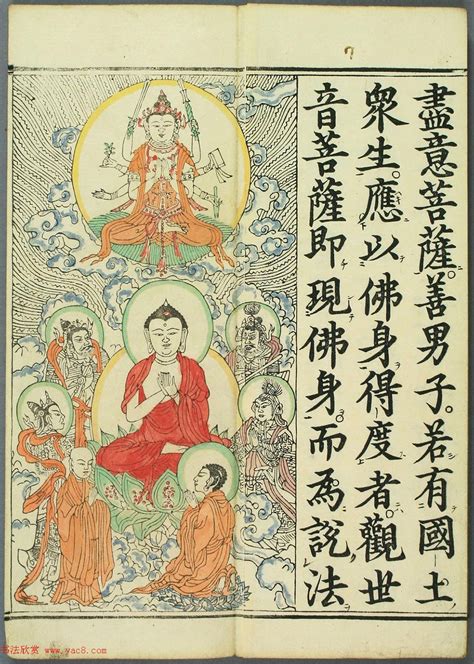 盡意菩薩。善男子。若有國土
衆生。應以佛身得度者。觀世
音菩薩。即現佛身而為說法
书法欣赏 www.yac8.com